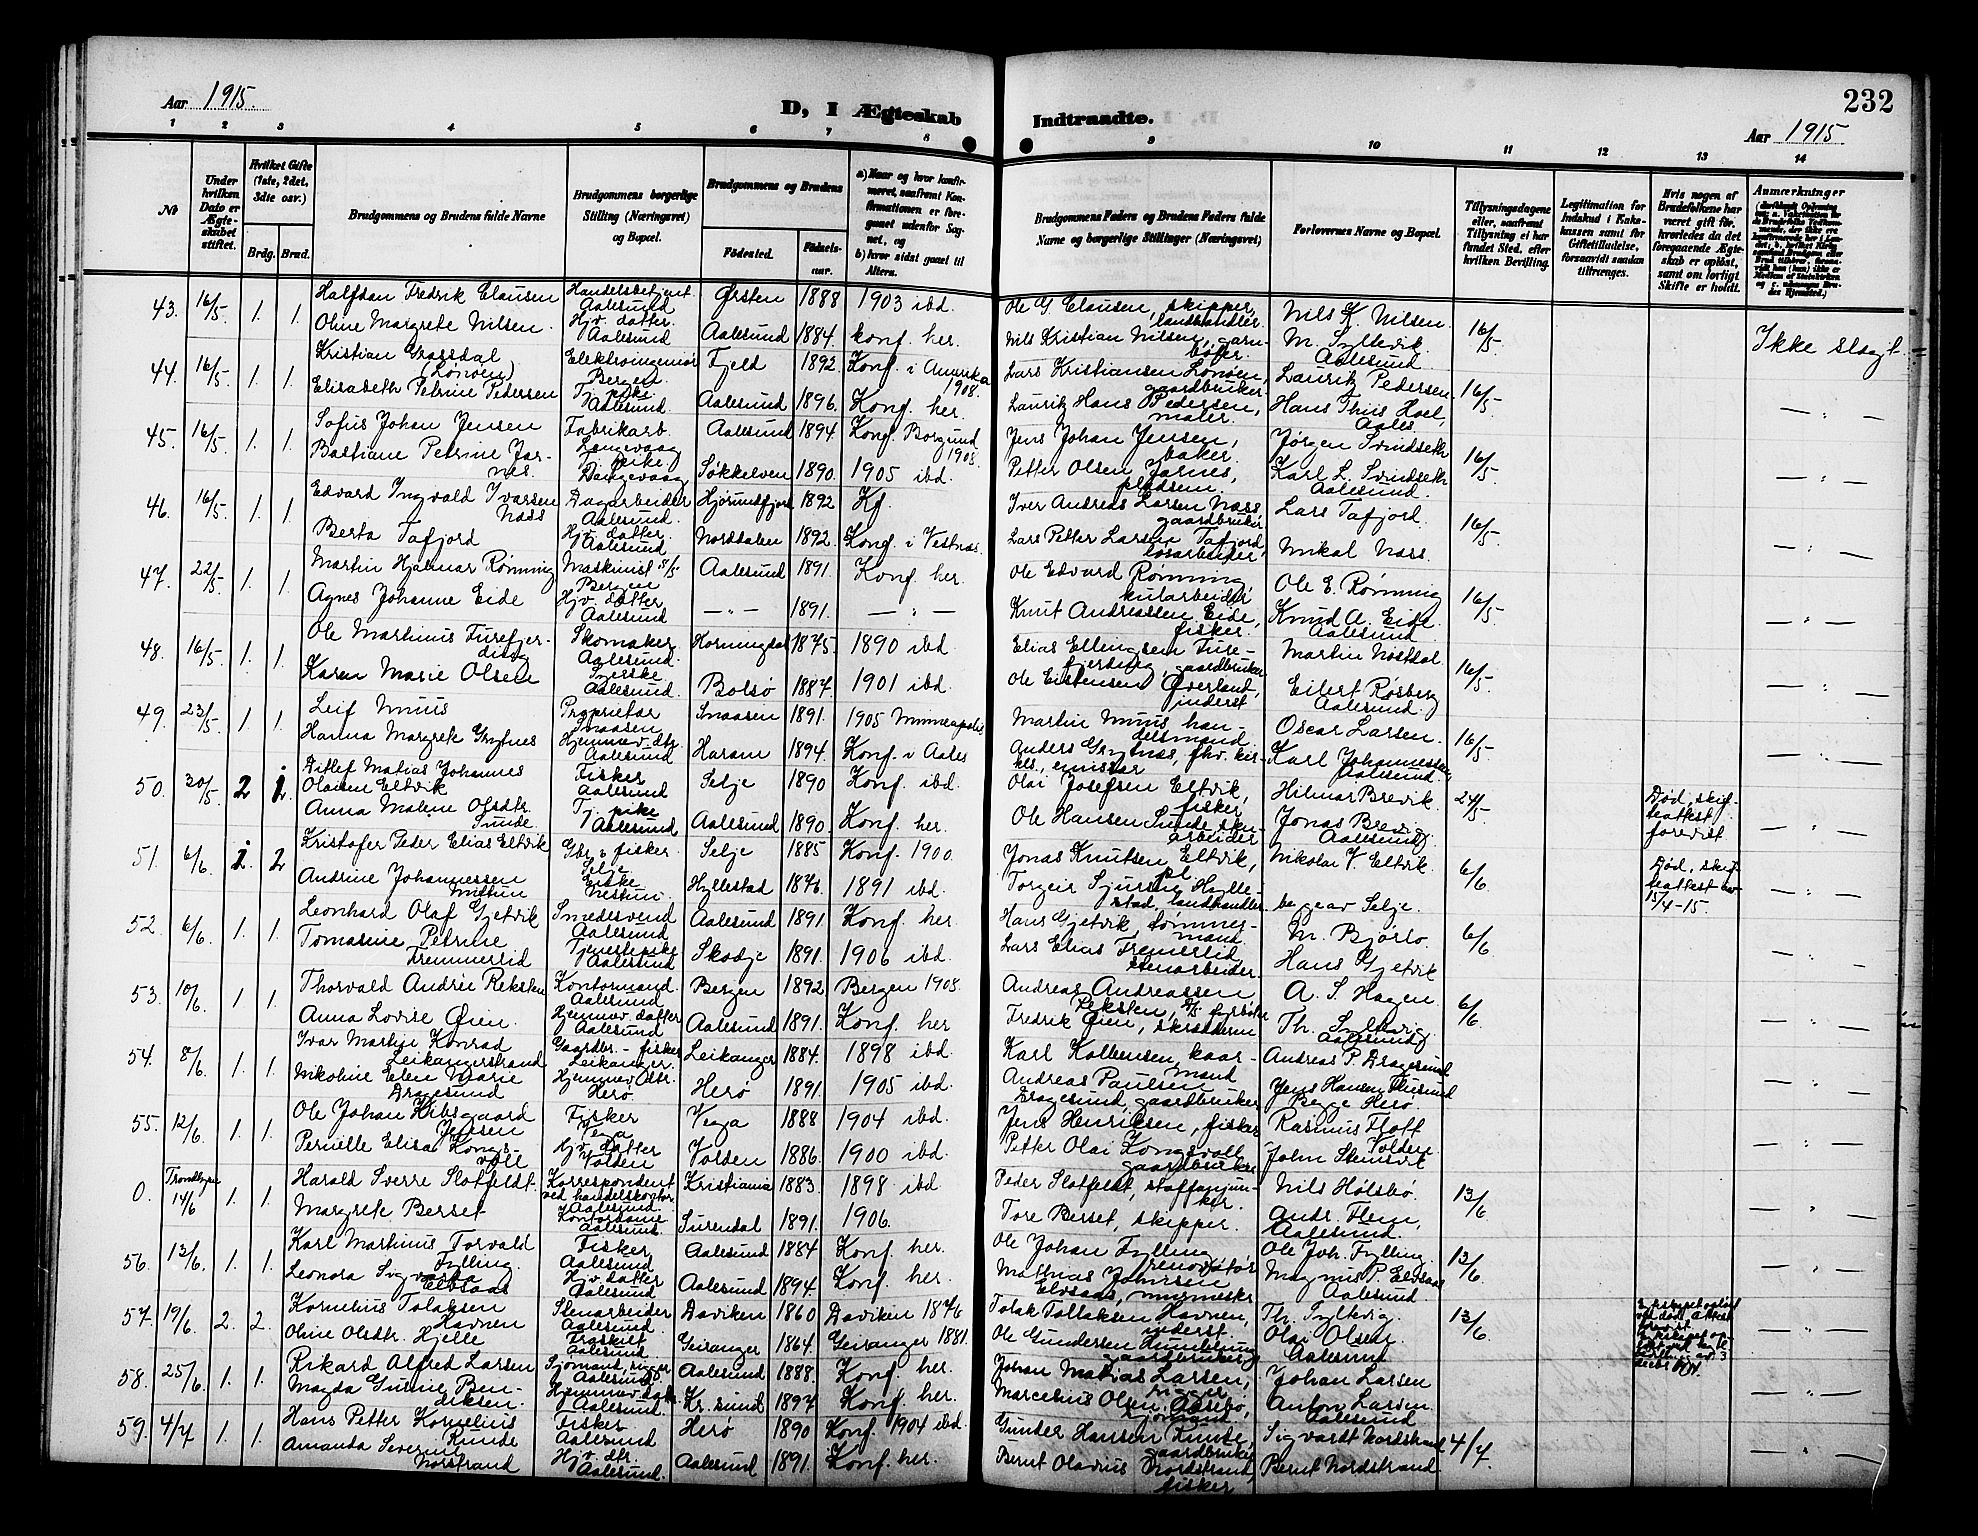 Aar 1915.
D, I Ægteskab
Indtraadte.
232
Aar 1915
1 2 3 4 5 6 7 8 9 10 11 12 13 14
No
Under hvilken Dato er Ægteskabet stiftet.
Hvilket Gifte (1ste, 2det, 3die osv.)
Brdg. Brud.
Brudgommens og Brudens fulde Navne
Brudgommens borgerlige Stilling (Næringsvei) og Bopæl.
Brudgommens og Brudens
Fødested. Fødselsaar.
a) Naar og hvor konfirmeret, saafremt Konfirmationen er foregaaet udenfor Sognet, og
b) hvor sidst gaaet til Alters.
Brudgommens Faders og Brudens Faders fulde Navne og borgerlige Stillinger (Næringsvei)
Forlovernes Navne og Bopæl.
Tillysningsdagene eller, saafremt Tillysning ei har fundet Sted, efter hvilken Bevilling.
Legitimation for Indskud i Enkekassen samt for Giftetilladelse, forsaavidt saadan tiltrænges.
Hvis nogen af Brudefolkene har været gift før, hvorledes da det foregaaende Ægteskab er opløst, samt om lovligt Skifte er holdt.
Anmærkninger
43. 16/5 1. 1. Halfdan Fredrik Clausen Handelsbetjent Aalesund Ørsten 1888 1903 ibd. Ole G. Clausen, skipper, landhandler. Nils K. Nilsen. 16/5 Ikke slagt.
Oline Margrete Nilsen. Hjv. datter. Aalesund Aalesund 1884. konf. her. Nils Kristian Nilsen, garnbøter. M. Syltevik. Aalesund
44. 16/5 1. 1. Kristian Graasdal (Lønøen) Elektroingeniør Bergen Fjeld 1892 Konf. i Amerika 1908. Lars Kristiansen Lønøen, gaardbruker Lauritz Pedersen 16/5 — " —
Elisabeth Petrine Pedersen Tj. pike Aalesund. Aalesund 1896. Konf. her. Lauritz Hans Pedersen, maler. Hans Thiis Hoel, Aales
45. 16/5 1. 1. Sofus Johan Jensen Fabrikarb. Langevaag Aalesund 1894. Konf. Borgund 1908. Jens Johan Jensen, baker. Jørgen Svindseth 16/5 — " —
Bastiane Petrine Jarnes. Tj. pike Langevaag Søkkelven 1890. 1905 ibd. Petter Olsen Jarnes, pladsem. Karl L. Svindseth Aalesund.
46. 16/5 1. 1. Edvard Ingvald Ivarsen Nass Dagarbeider Aalesund. Hjørundfjord 1892 Kf. Iver Andreas Larsen Nass, gaardbruker Lars Tafjord. 16/5 — " —
Berta Tafjord Hjv. datter. Aalesund Norddalen 1892. Konf. i Vestnas. Lars Petter Larsen Tafjord, løsarbeider, Mikal Nass.
47. 22/5 1. 1. Martin Hjalmar Rønning Maskinist Bergen Aalesund 1891. Konf. her. Ole Edvard Rønning, kularbeider Ole E. Rønning 16/5 — " —
Agnes Johanne Eide Hjv. datter Aalesund — " — 1891. — " — Knut Andreassen Eide, fisker. Knud A. Eide. Aalesund
48. 16/5 1. 1. Ole Martinus Furefjerding Skomaker Aalesund. Horningdal 1875. 1890 ibd. Elias Ellingsen Furefjerding, gaardbruker Martin Nøstdal. 16/5 — " —
Karen Marie Olsen Syerske Aalesund. Bolsø 1887 1901 ibd. Ole Eistensen Øverland, inderst Eilert Røsberg Aalesund.
49. 23/5 1. 1. Leif Muus Proprietær Snaasen Snaasen 1891. 1905 Minneapolis Martin Muus handelsmand. Oscar Larsen. 16/5 — " —
Hanna Margrete Grytnes Hjemmev. dtr. Aalesund Haram 1894. Konf. i Aales Anders Grytnas, fhv. Karl Johannessen Aalesund.
50. 30/5 2 1 Ditlef Matias Johannes Olaisen Eltvik Fisker Aalesund Selje 1890 Konf. ibd. Olai Josefsen Eltvik, fisker Hilmar Brevik. 24/5- Død, skifteattest forevist — " —
Anna Malene Olsdtr. Sunde Tj. pike Aalesund Aalesund 1890. Konf. her. Ole Hansen Sunde arbeider Jonas Brevig. Aalesund
51. 6/6 1. 2 Kristofer Peder Elias Eltvik Gbr. & fisker. Selje Selje 1885 Konf. 1900. Jonas Knutsen Eltvik, pl. Nikolai V. Eltvik 6/6 Død, skifteattest 15/4-15. — " —
Andrine Johannessen Hyllestad 1876. 1891 ibd. Torgeir Sjursen Hyllestad, landhandler begge av Selje.
52. 6/6 1. 1. Leonhard Olaf Gjetvik Smedesvend Aalesund Aalesund 1891 Konf. her. Hans Gjetvik, tømmermand. M. Bjørlo. 6/6 — " —
Tomasine Petrine Fremmerlid Tjenestepike Aalesund Skodje 1891. 1906 ibd. Lars Elias Fremerlid, stenarbeider. Hans Gjetvik
53. 10/6 1. 1. Thorvald Andrei Reksten Kontormand Aalesund Bergen 1892 Bergen 1908. Andreas Andreassen Reksten, fyrbøter A. S. Hagen. 6/6 — " —
Anna Lovise Øien. Hjemmev. datter Aalesund Aalesund 1891. Konf. her Fredrik Øien, skræddern Th. Syltevig. Aalesund
54. 8/6 1. 1. Ivar Martin Konrad Leikangerstrand Gaardbr.-fisker Leikanger. Leikanger 1884. 1898 ibd. Karl Kolbensen, kaarmand Andreas P. Dragesund — " —
Nikoline Elen Marie Dragesund Hjemmev. dtr. Herø Herø 1891. 1905 ibd. Andreas Paulsen Dragesund, gaardbruker Jens Hansen Begge Herø.
55. 12/6 1. 1. Ole Johan Jensen Fisker Vega Vega 1888 1904 ibd. Jens Henriksen, fisker Rasmus Floff — " —
Pernille Elisa Kongsvoll Hjv. datter Volden Volden 1886. 1900 ibd. Petter Olai Kongsvoll gaardbruker John Stensvik Volden.
0. Trondhjem 14/6 1. 1. Harald Sverre Slotfeldt. Korrespondent ved handelskontor. Aalesund. Kristiania 1883. 1898 ibd Peder Slotfeldt, Nils Holsbø. 13/6 — " —
Margrete Berset Kontordame Aalesund. Surendal 1891. 1906. Tore Berset, skipper. Andr. Flem, Aalesund.
56. 13/6. 1. 1. Karl Martinus Torvald Fylling. Fisker Aalesund Aalesund 1884 Konf. her. Ole Johan Fylling, renovatør Ole Joh. Fylling. 13/6 — " —
Leonora Elvsaas Hjv. datter Aalesund Aalesund 1894. Konf. her. Mathias Johnsen Elvsaas, murmester Magnus P. Elvsaas Aalesund.
57. 19/6. 2. 2. Kornelius Tolaksen Havnen Stenarbeider Aalesund. Daviken 1860 Daviken 1876 Tolak Tollaksen Havnen, inderst. Th. Syltevig. 13/6 — " —
Oline Olsdtr. Hjelle Fraskilt Aalesund Geiranger 1864. Geiranger 1881. Ole Gundersen gaardbruker Olai Olsen. Aalesund
58. 25/6. 1. 1. Rikard Alfred Larsen Sjømand, Aalesund Aalesund 1888. Konf. her. Johan Matias Larsen, rigger Johan Larsen — " —
Magda Gurine Bendiksen. Hjemmev. datter Aalesund. Kr. sund 1897 Konf. her. Marcelius Olsen Aasebø, sjømand Anton Larsen Aalesund
59. 4/7 1. 1. Hans Petter Kornelius Runde Fisker Aalesund Herø 1890 Konf. 1904 ibd. Gunder Hansen Runde, gaardbruker Sigvardt Nordstrand 4/7. — " —
Amanda Severine Norstrand Hjv. dtr. Aalesund. Aalesund 1891. Konf. her. Bernt Olavius Nordstrand, fisker Bernt Nordstrand.